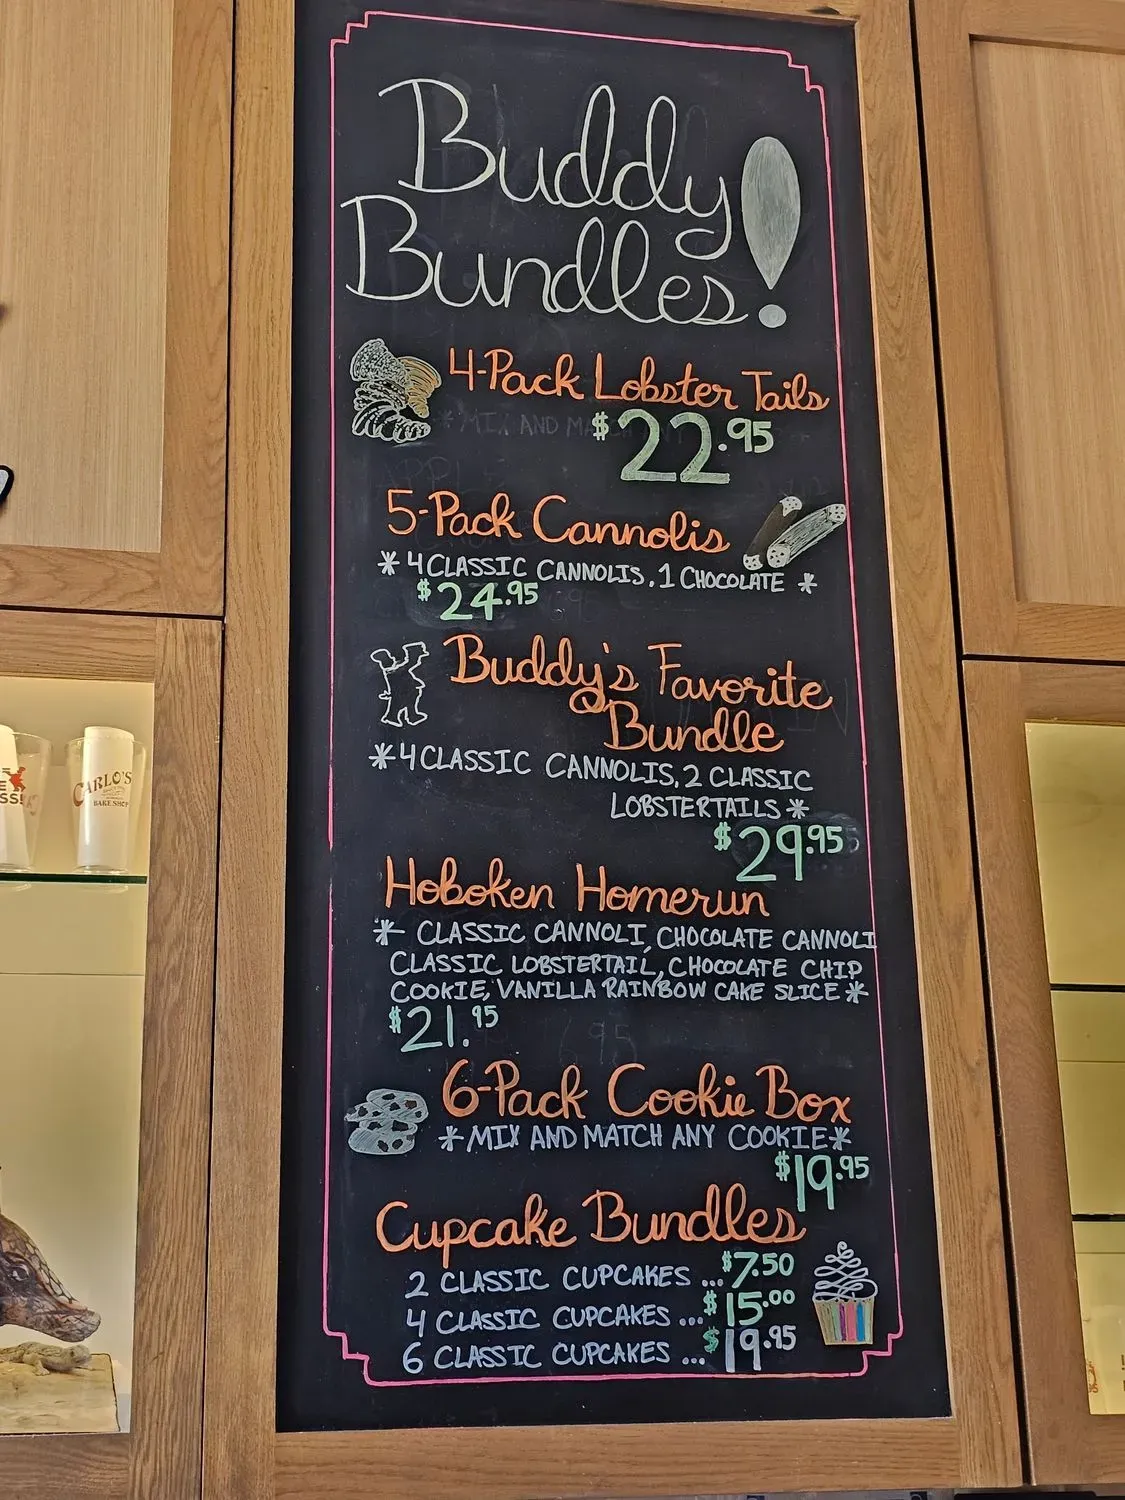 Buddy
Bundles!
4-Pack Lobster Tails
* MIX AND
$22.95
5-Pack Cannolis
* 4 CLASSIC CANNOLIS, 1 CHOCOLATE *
$24.95
Buddy's Favorite
Bundle
* 4 CLASSIC CANNOLIS, 2 CLASSIC
LOBSTERTAILS *
$29.95
Hoboken Homerun
* CLASSIC CANNOLI, CHOCOLATE CANNOLI
CLASSIC LOBSTERTAIL, CHOCOLATE CHIP
COOKIE, VANILLA RAINBOW CAKE SLICE *
$21.95
6-Pack Cookie Box
* MIX AND MATCH ANY COOKIE *
$19.95
Cupcake Bundles
2 CLASSIC CUPCAKES ... $7.50
4 CLASSIC CUPCAKES ... $15.00
6 CLASSIC CUPCAKES ... $19.95
CARLO'S
BAKE SHOP